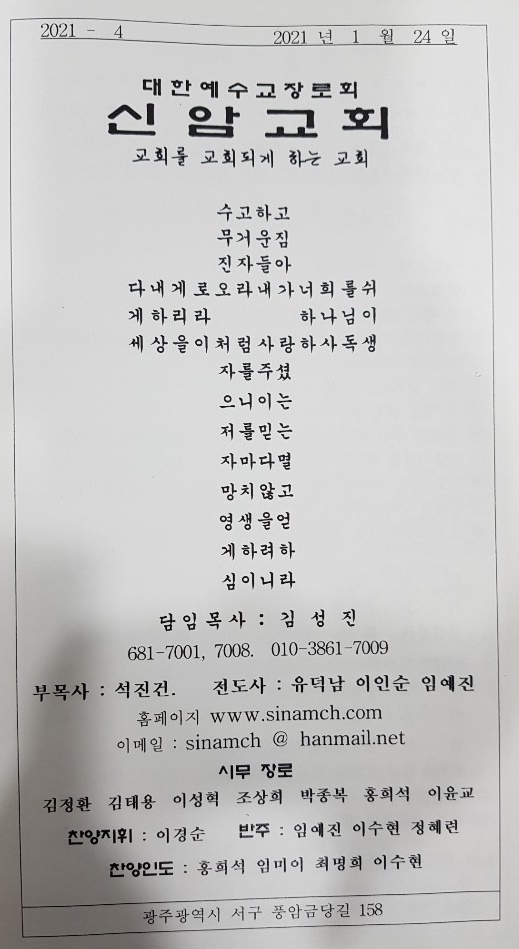 2021 - 4 2021 년 1 월 24 일
대한예수교장로회
신 암 교 회
교회를 교회되게 하는 교회
수고하고
무거운짐
진자들아
다내게로오라내가너희를쉬
게하리라 하나님이
세상을이처럼사랑하사독생
자를주셨
으니이는
저를믿는
자마다멸
망치않고
영생을얻
게하려하
심이니라
담임목사 : 김 성 진
681-7001, 7008. 010-3861-7009
부목사 : 석진건. 전도사 : 유덕남 이인순 임예진
홈페이지 www.sinamch.com
이메일 : sinamch @ hanmail.net
시무 장로
김정환 김태용 이성혁 조상희 박종복 홍희석 이윤교
찬양지휘 : 이경순 반주 : 임예진 이수현 정혜련
찬양인도 : 홍희석 임미이 최명희 이수현
광주광역시 서구 풍암금당길 158